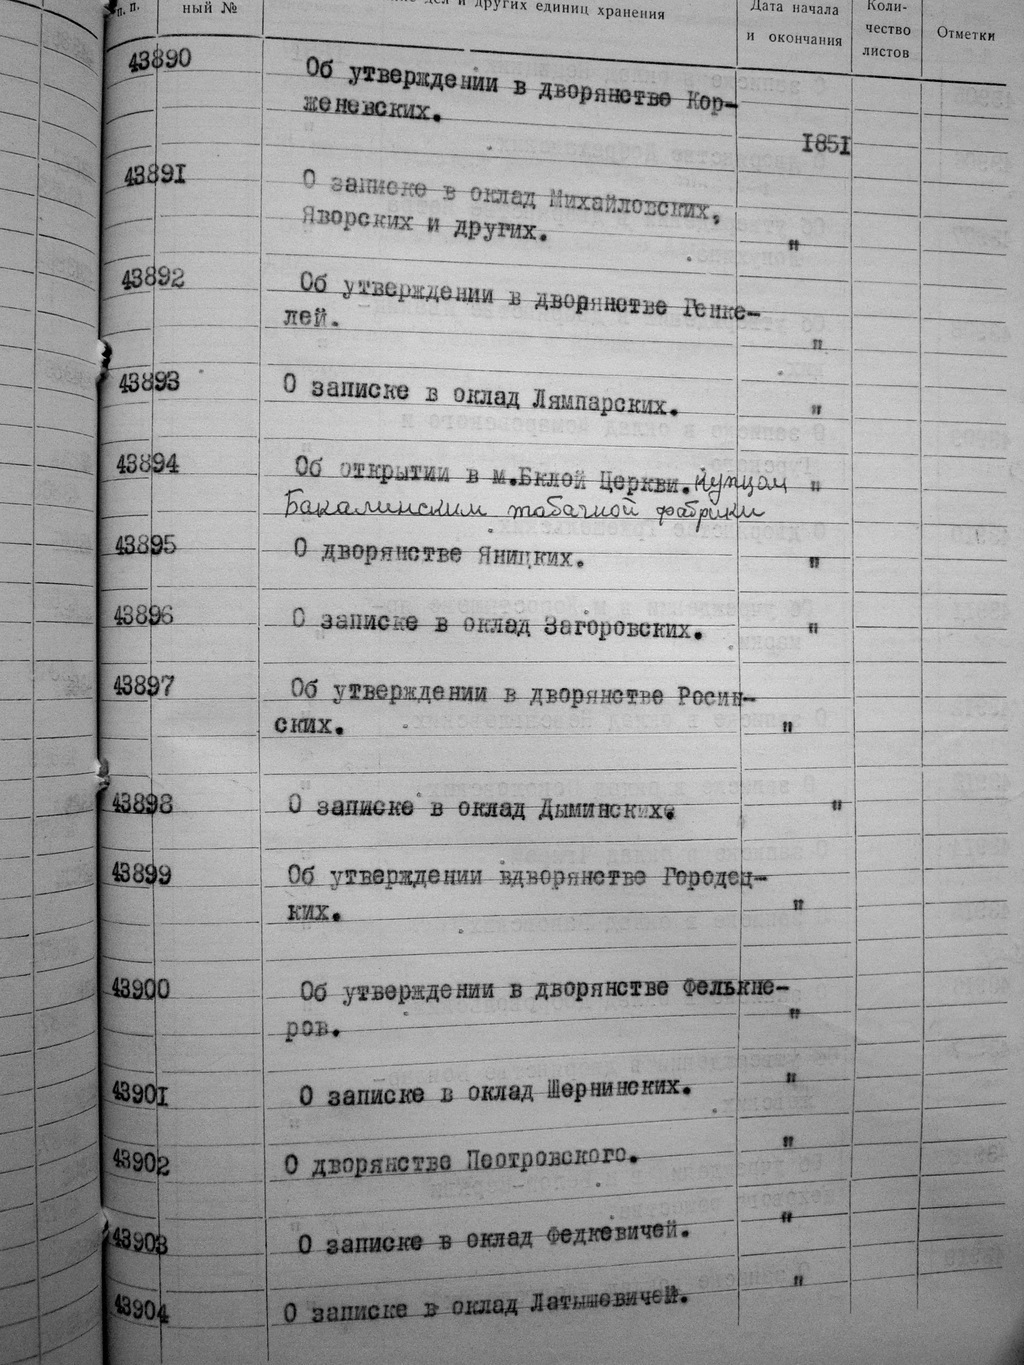 п. п.
ный №
дел и других единиц хранения
Дата начала
и окончания
Коли-
чество
листов
Отметки
43890 Об утверждении в дворянстве Кор-
женевских.
1851
43891 О записке в оклад Михайловских,
Яворских и других. "
43892 Об утверждении в дворянстве Генке-
лей. "
43893 О записке в оклад Лямпарских. "
43894 Об открытии в м.Бклой Церкви. Купцом "
Бакалинским табачной фабрики
43895 О дворянстве Яницких. "
43896 О записке в оклад Загоровских. "
43897 Об утверждении в дворянстве Росин-
ских. "
43898 О записке в оклад Дыминских. "
43899 Об утверждении вдворянстве Городец-
ких. "
43900 Об утверждении в дворянстве Фелькне-
ров. "
43901 О записке в оклад Шернинских. "
43902 О дворянстве Пеотровского. "
43903 О записке в оклад Федкевичей. "
43904 О записке в оклад Латышевичей. "